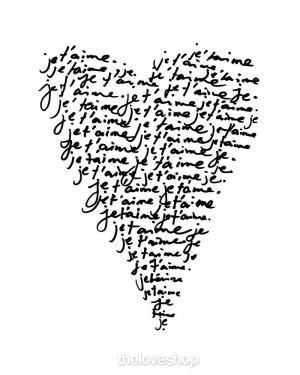 je t'aime.. je t'aime
je t'aime. je. je t'aime. je t'aime.
je t'je t'aime je t'aime je.
je t'aime. je t'aime je t'aime.
je t'aime je t'aime je t'aime je
je t'aime. je t'aime je t'aime
je t'aime je t'aime je t'aime.
je t'aime je t'aime je.
je t'aime je t'aime je.
je t'aime je t'aime.
je t'aime je t'aime
je t'aime je t'aime.
je t'aime je
je t'aime je
je t'aime.
je t'aime.
je t'aime
je t'aime
je
t'aime
je
theloveshop